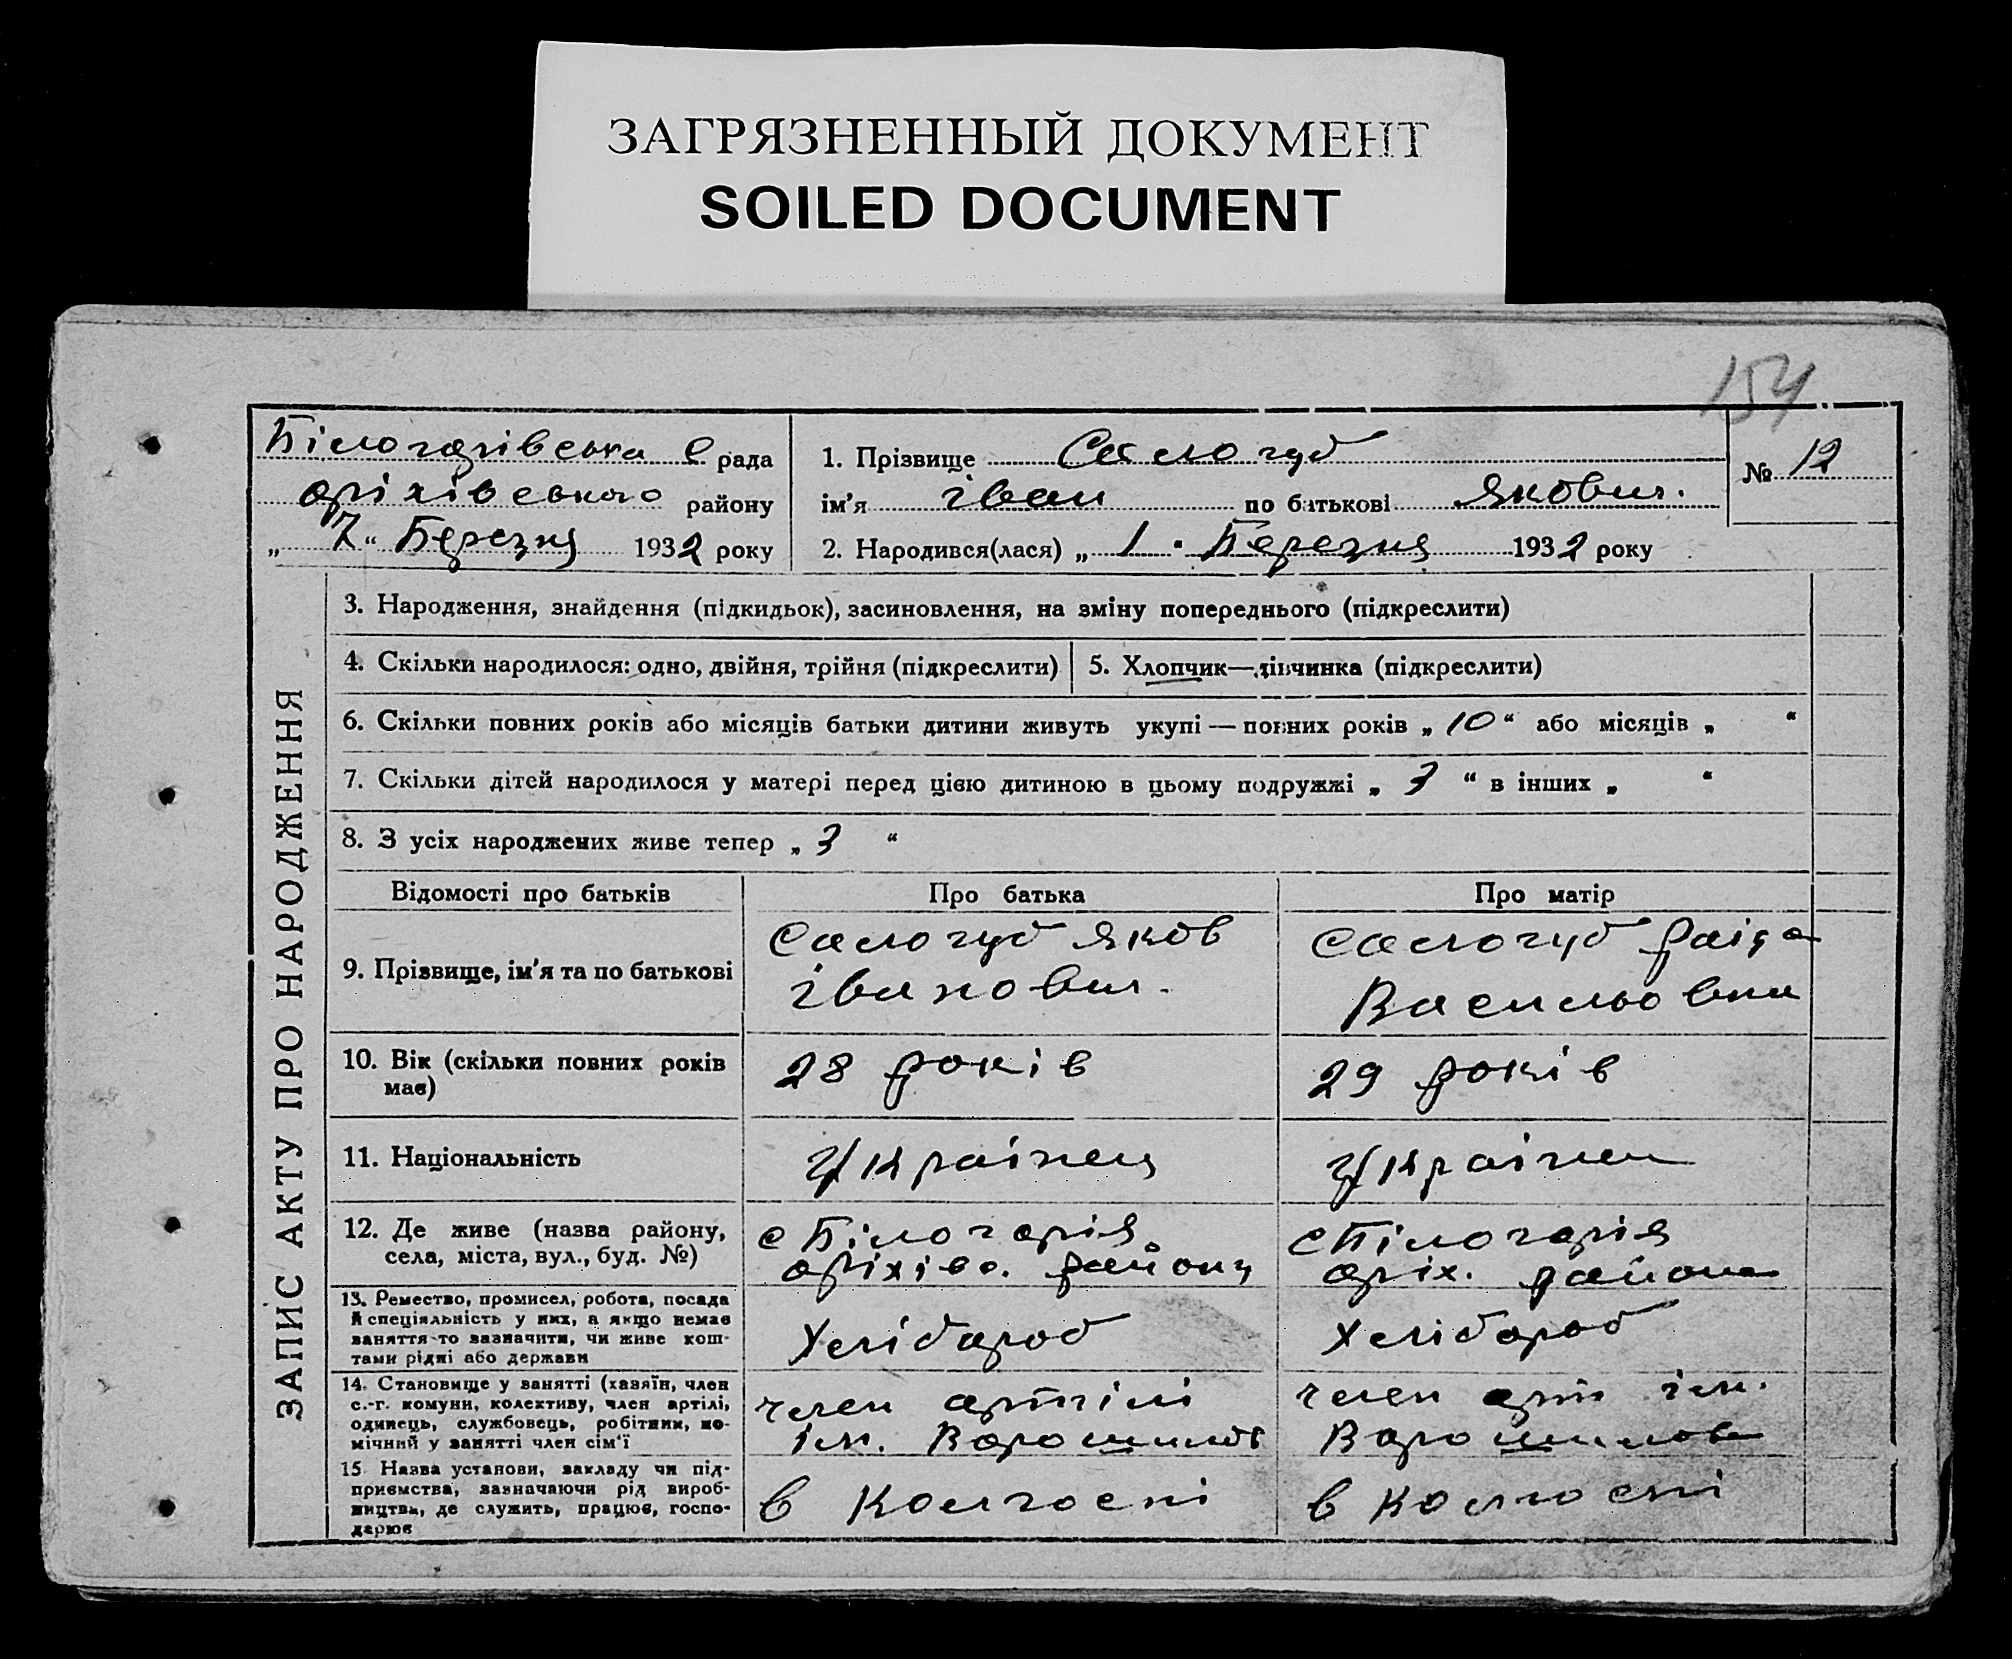 ЗАГРЯЗНЕННЫЙ ДОКУМЕНТ
SOILED DOCUMENT
154
Білогарівська с рада
оріхівського району
„ 7 “ Березня 1932 року
1. Прізвище Салогуб
ім'я іван по батькові Якович.
2. Народився(лася) „ 1 " Березня 1932 року
№ 12
ЗАПИС АКТУ ПРО НАРОДЖЕННЯ
3. Народження, знайдення (підкидьок), засиновлення, на зміну попереднього (підкреслити)
4. Скільки народилося: одно, двійня, трійня (підкреслити)
5. Хлопчик—дівчинка (підкреслити)
6. Скільки повних років або місяців батьки дитини живуть укупі — повних років „ 10 “ або місяців „ “
7. Скільки дітей народилося у матері перед цією дитиною в цьому подружжі „ 3 “ в інших „ “
8. З усіх народжених живе тепер „ 3 “
Відомості про батьків
Про батька
Про матір
9. Прізвище, ім'я та по батькові
Салогуб Яков
іванович.
Салогуб раіда
Васильовна
10. Вік (скільки повних років
має)
28 років
29 років
11. Національність
Украінец
Украінка
12. Де живе (назва району,
села, міста, вул., буд. №)
с Білогарія
оріхівс. району
с Білогарія
оріх. района
13. Ремество, промисел, робота, посада
й спеціяльність у них, а якщо немає
заняття-то зазначити, чи живе кош-
тами рідні або держави
Хлібароб
Хлібороб
14. Становище у занятті (хазяїн, член
с.-г. комуни, колективу, член артілі,
одинець, службовець, робітник, по-
мічний у занятті член сім'ї
член артілі
ім. Ворошилов
член арт ім.
Ворошилова
15 Назва установи, закладу чи під-
приємства, зазначаючи рід вироб-
ництва, де служить, працює, госпо-
дарює
в колгоспі
в колгоспі